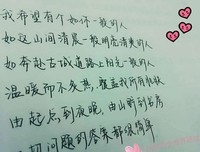 我希望有个如你一般的人
如这山间清晨一般明亮清爽的人
如奔赴古城道路上阳光一般的人
温暖而不炙热，覆盖我所有肌肤
由起点到夜晚，由山野到书房
一切问题的答案都很简单